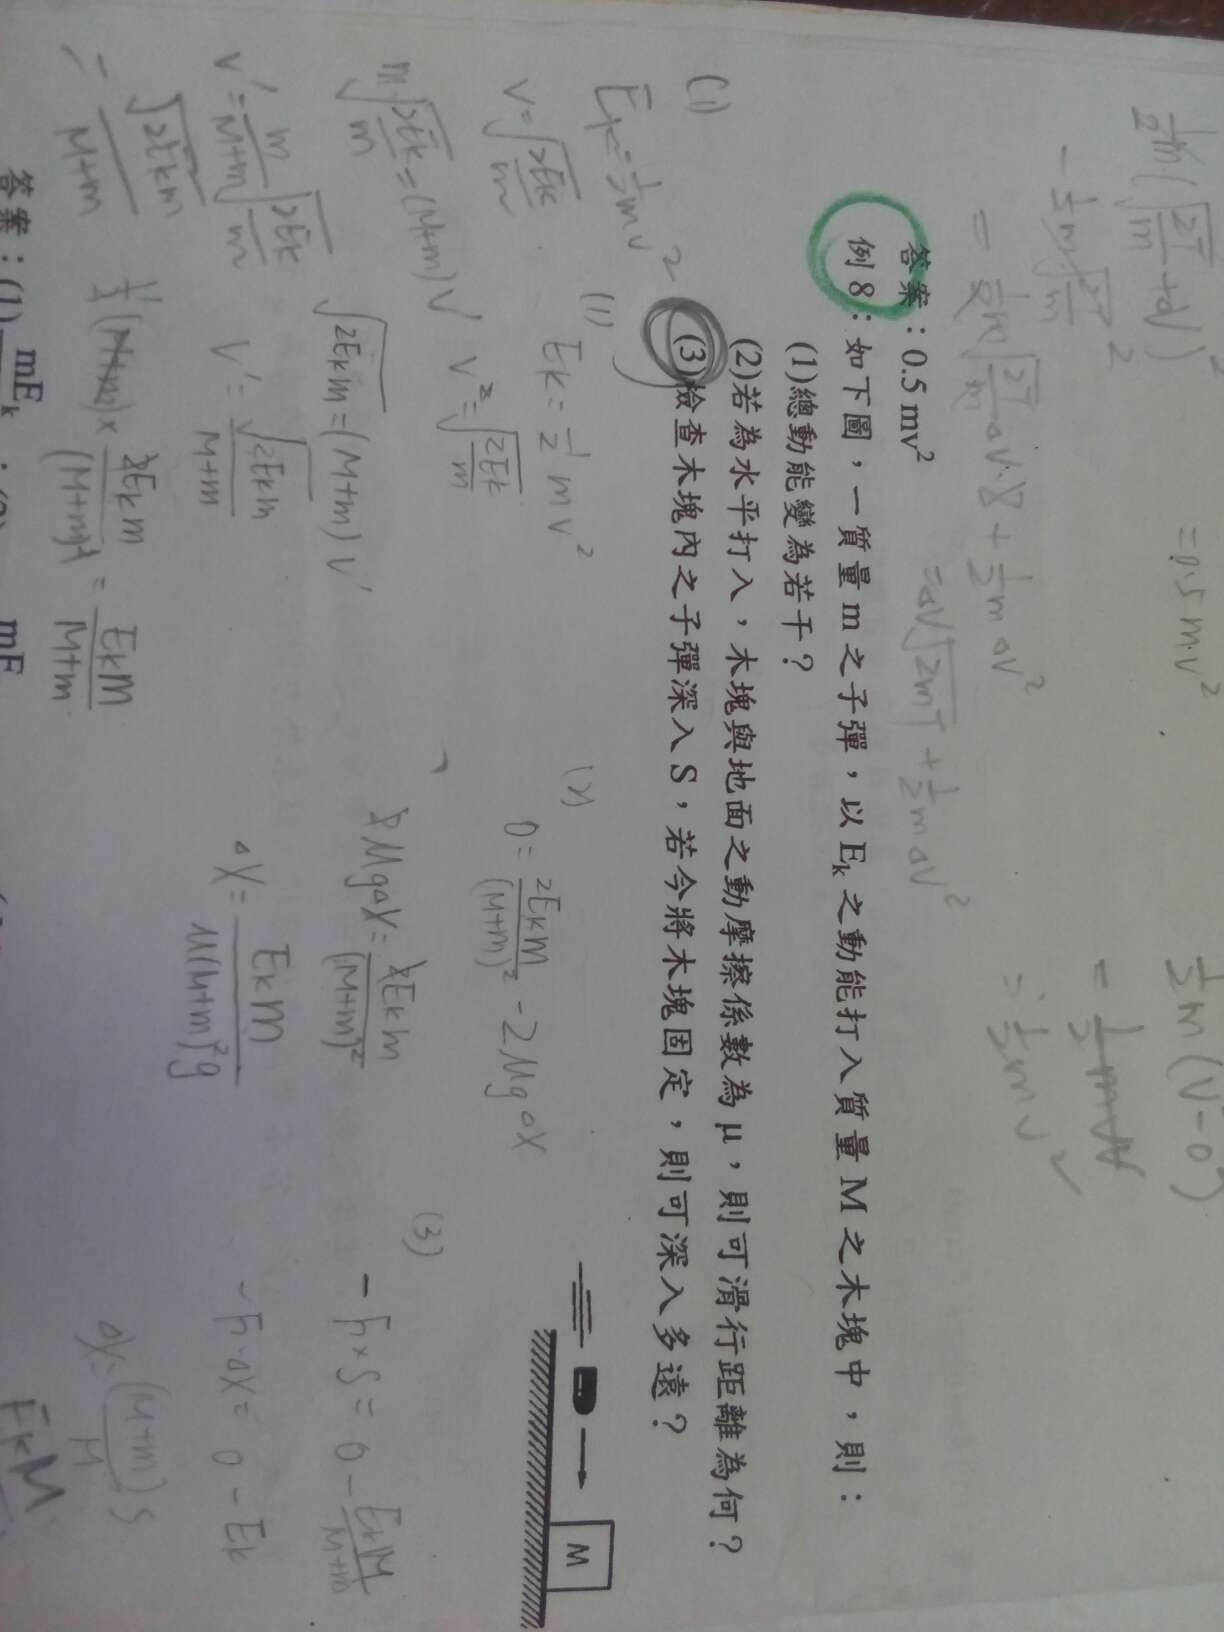 ½m(√(2T/m)+ΔV)²
- ½m√(2T/m)²
= 0.5mv²
½m(v-0)
= ½m√(2T/m)ΔV·8 + ½mΔV²
= ΔV√(2mT) + ½mΔV²
= ½mv²
答案：0.5 mv²
例 8：如下圖，一質量 m 之子彈，以 Eₖ 之動能打入質量 M 之木塊中，則：
(1)總動能變為若干？
(2)若為水平打入，木塊與地面之動摩擦係數為 μ，則可滑行距離為何？
(3)檢查木塊內之子彈深入 S，若今將木塊固定，則可深入多遠？
M
(1)
Ek=½mv²
V=√(2Ek/m)
m√(2Ek/m)=(M+m)V
V'=m/(M+m)√(2Ek/m)
=√(2Ekm)/(M+m)
(1)
Ek=½mv²
V²=√(2Ek/m)
√(2Ekm)=(M+m)V'
V'=√(2Ekm)/(M+m)
½(M+m)×2Ekm/(M+m)²=Ekm/(M+m)
(2)
0=2Ekm/(M+m)²-2μgΔX
2μgΔX=2Ekm/(M+m)²
ΔX=Ekm/(μ(M+m)²g)
(3)
-F×S=0-EkM/(M+m)
-F·ΔX=0-Ek
ΔX=(M+m)S/M
EkM
答案：(1) mEₖ